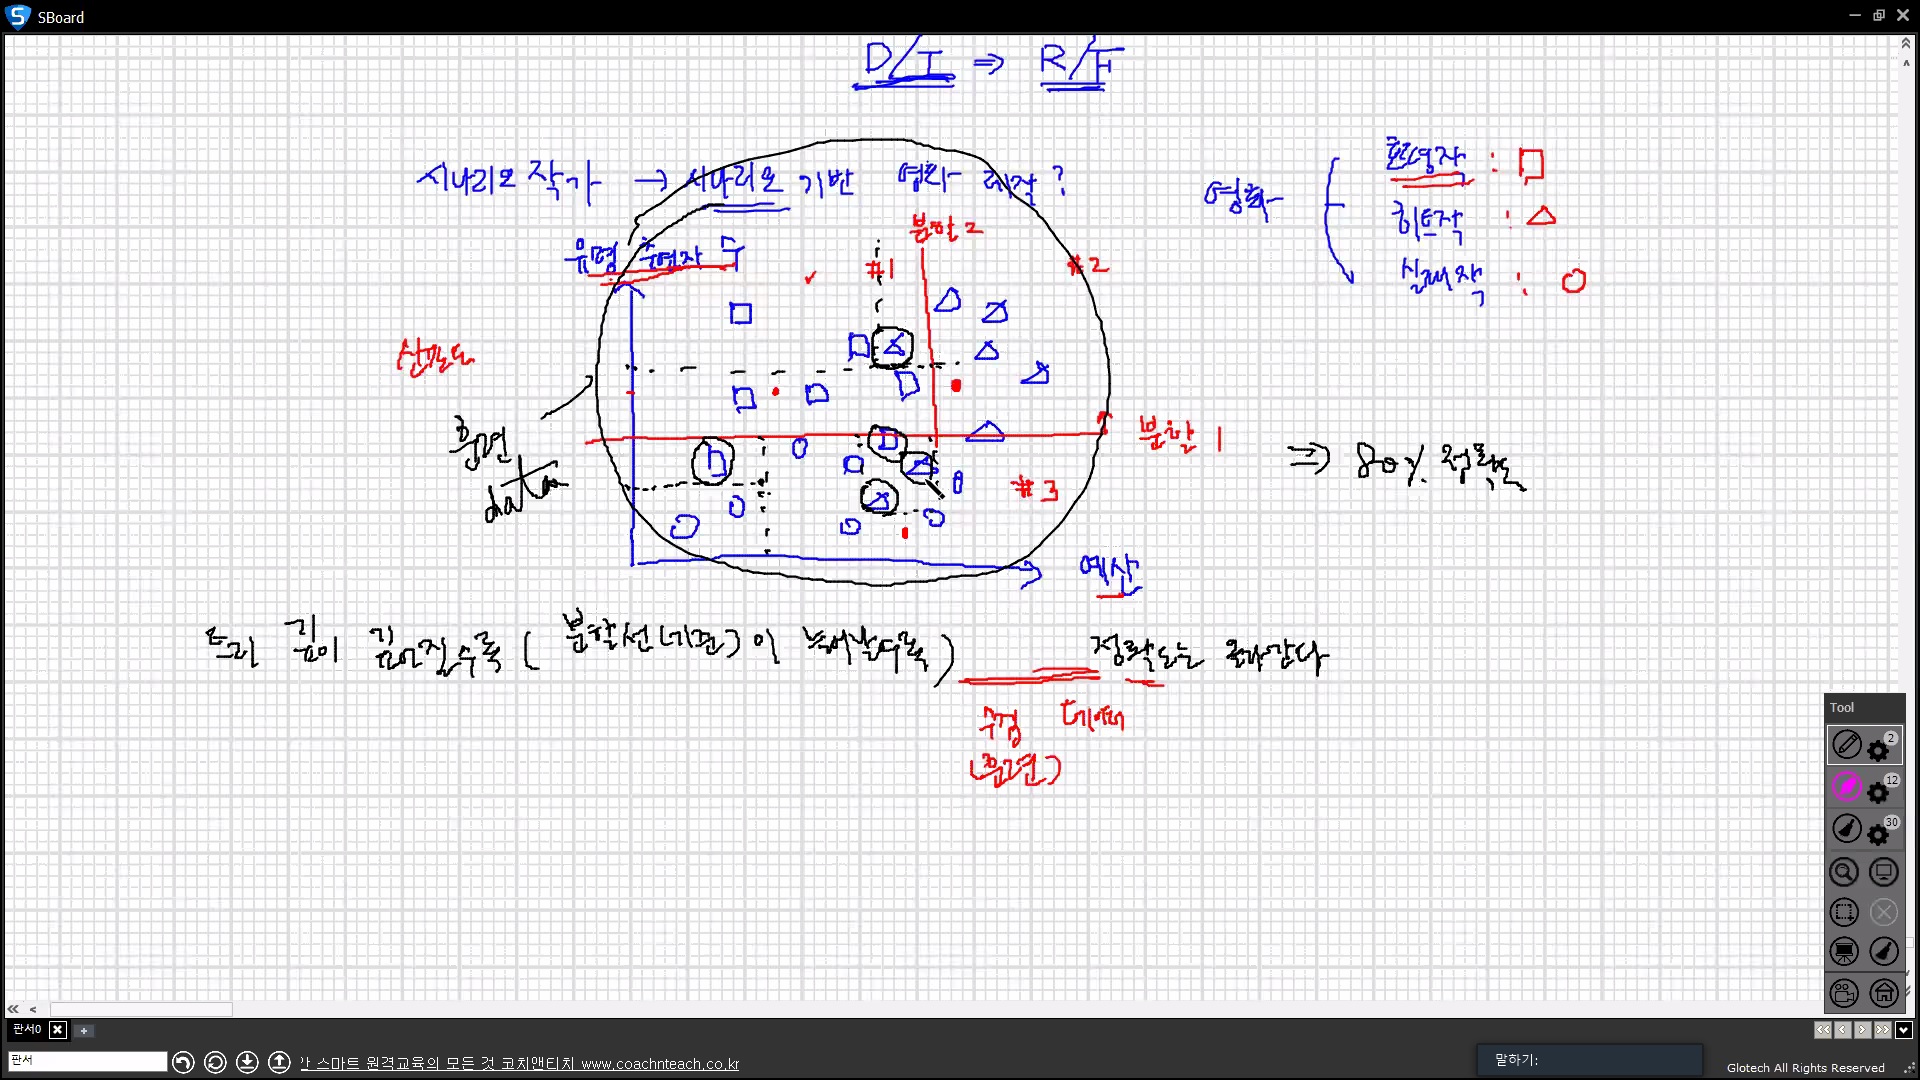 SBoard
D/I ⇒ R/F
시나리오 작가 → 시나리오 기반 영화 제작 ?
영화
: □
히트작 : △
실패작 : ○
유명 출연자 수
분할 2
#1
#2
산점도
훈련
data
분할 1
#3
⇒ 80%
예산
트리 깊이 깊어질수록 ( 분할선(기준)이 늘어날수록 ) 정확도는 올라간다
수정 데이터
(훈련)
Tool
2
12
30
판서0
판서
간 스마트 원격교육의 모든 것 코치앤티치 www.coachnteach.co.kr
말하기:
Glotech All Rights Reserved